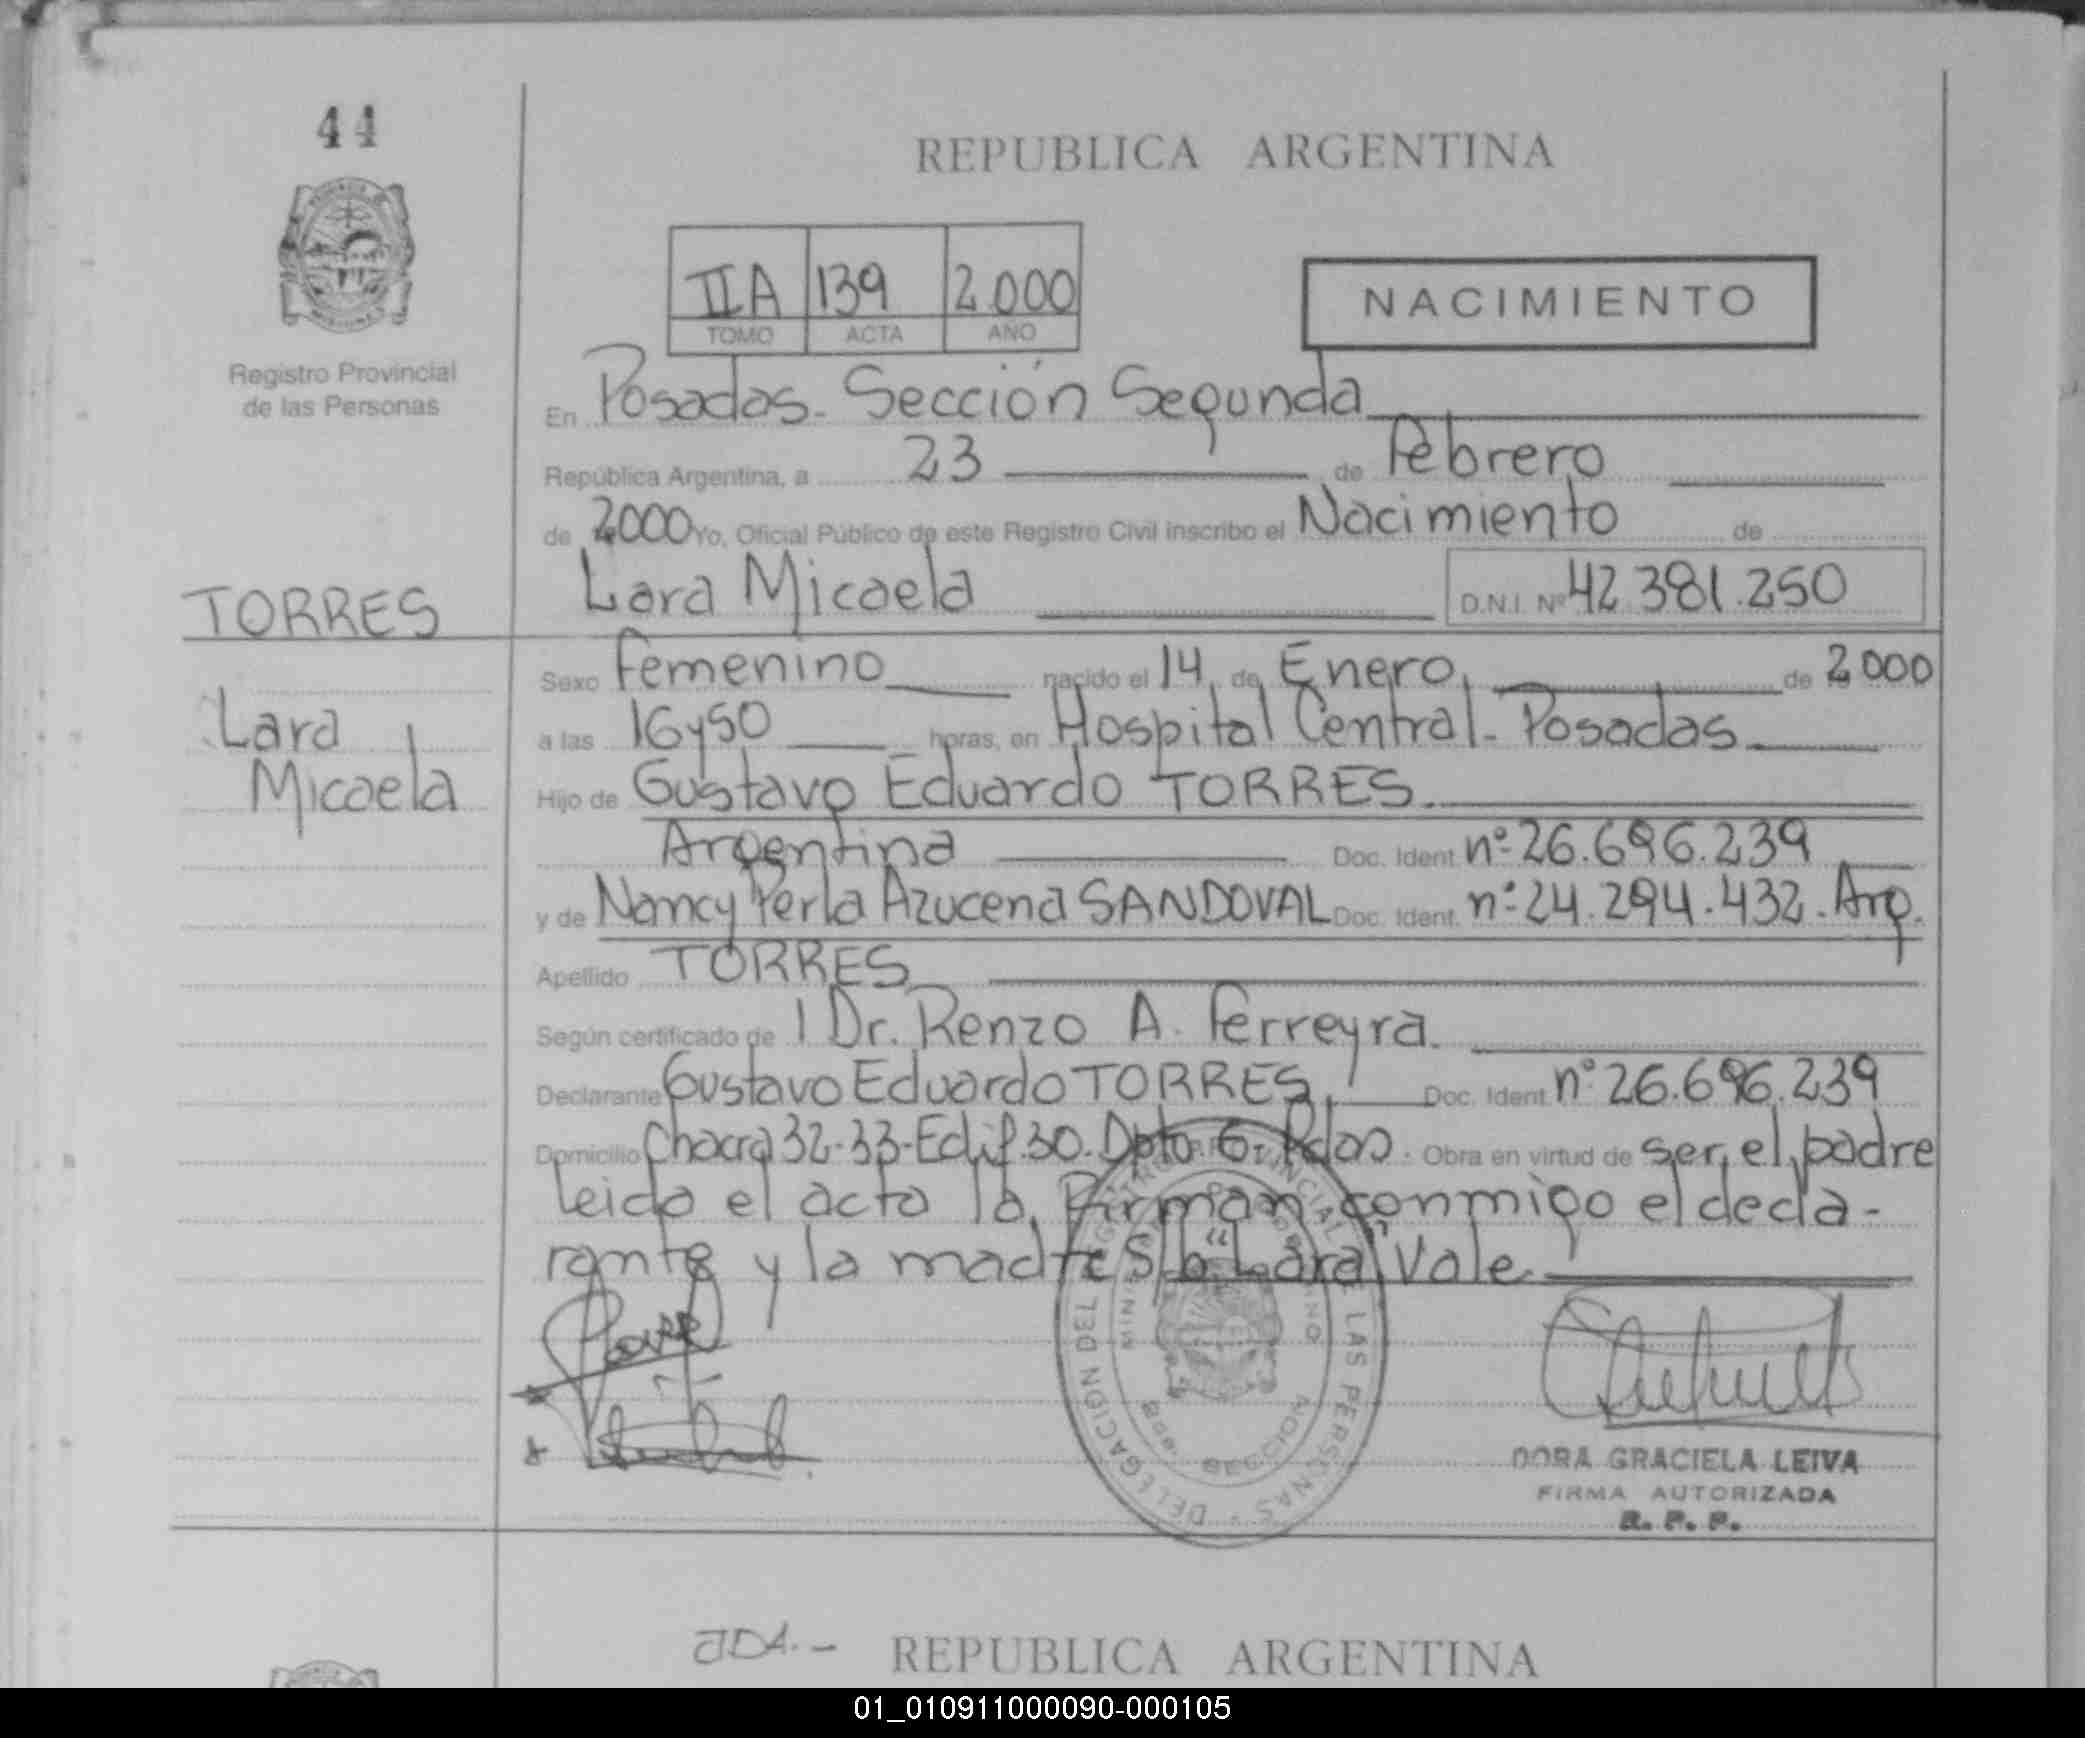 44
REPUBLICA ARGENTINA
IIA 139 2.000
TOMO ACTA AÑO
NACIMIENTO
Registro Provincial
de las Personas
En Posadas - Sección Segunda
República Argentina, a 23 de Febrero
de 2000 Yo, Oficial Público de este Registro Civil inscribo el Nacimiento de
TORRES
Lara Micaela D.N.I. Nº 42.381.250
Lara
Micaela
Sexo Femenino nacido el 14 de Enero de 2000
a las 16 y 50 horas, en Hospital Central - Posadas
Hijo de Gustavo Eduardo TORRES.
Argentina Doc. Ident. nº 26.696.239
y de Nancy Perla Azucena SANDOVAL Doc. Ident. nº 24.294.432. Arg.
Apellido TORRES
Según certificado de l Dr. Renzo A. Ferreyra.
Declarante Gustavo Eduardo TORRES Doc. Ident. nº 26.696.239
Domicilio Chacra 32-33-Edif.30. Dpto. 6. Pdas. Obra en virtud de ser el padre
leida el acta la firman conmigo el decla-
rante y la madre S/b "Lara" Vale.
DELEGACION DEL REGISTRO PROVINCIAL DE LAS PERSONAS
SECCION
DORA GRACIELA LEIVA
FIRMA AUTORIZADA
R. P. P.
REPUBLICA ARGENTINA
01_010911000090-000105